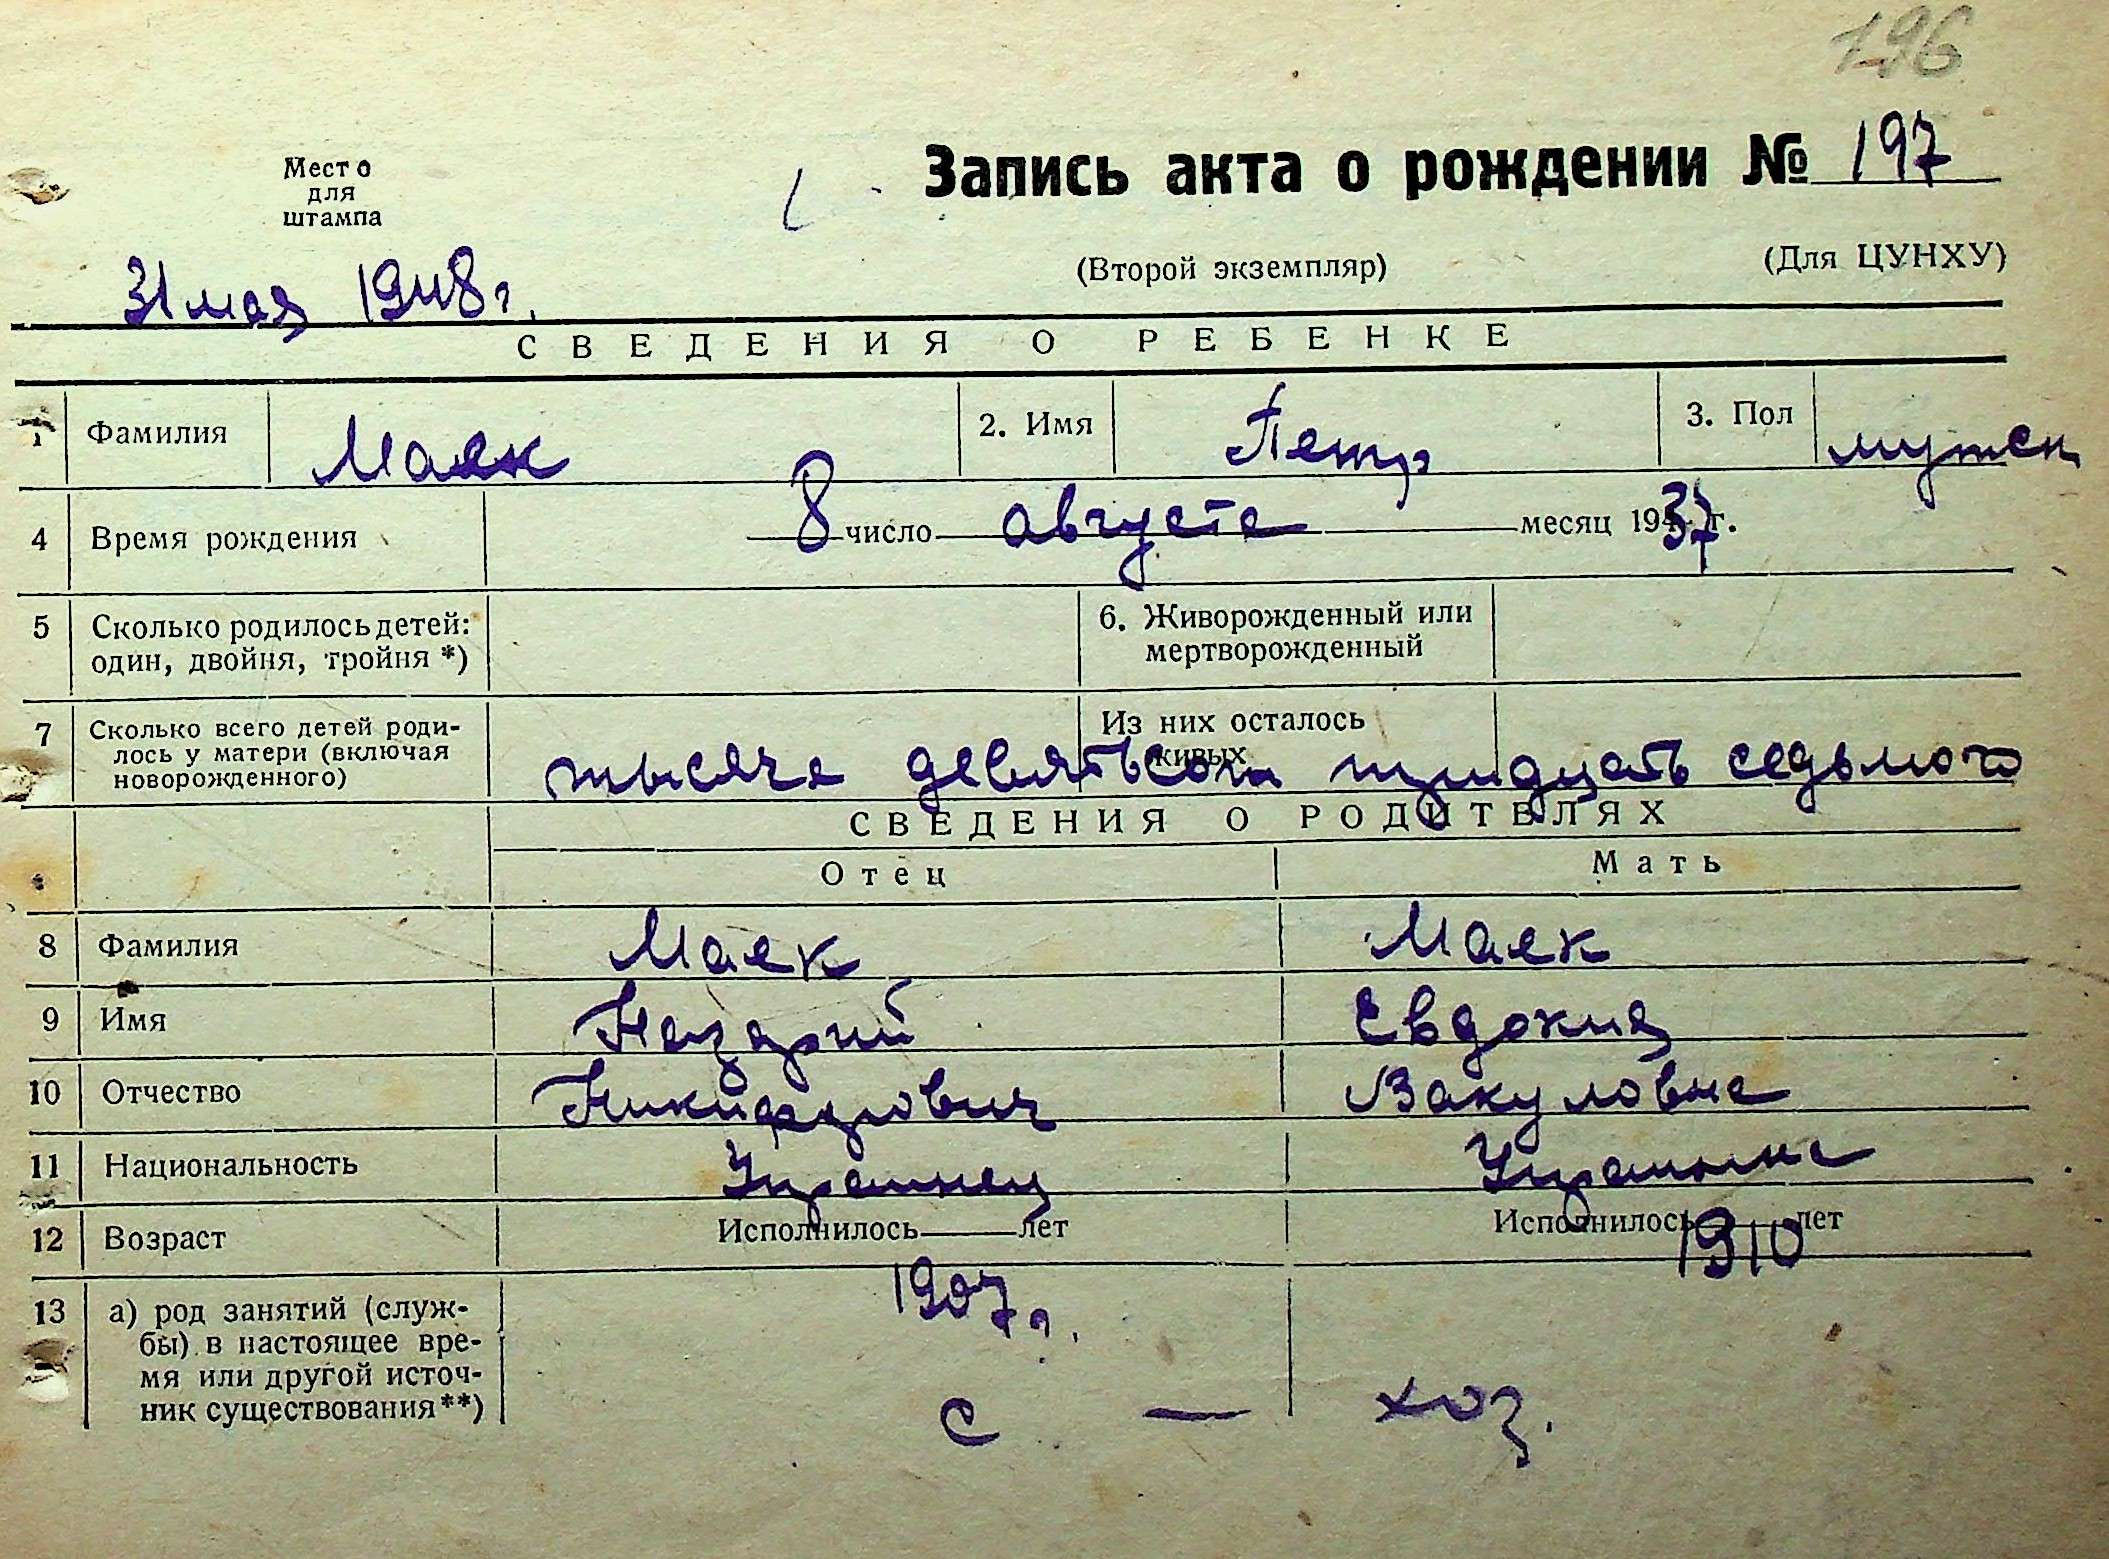 196
Место
для
штампа
Запись акта о рождении № 197
(Второй экземпляр) (Для ЦУНХУ)
31 мая 1948 г.
СВЕДЕНИЯ О РЕБЕНКЕ
1 Фамилия Маяк 2. Имя Петр 3. Пол мужск
4 Время рождения 8 число августа месяц 1937 г.
5 Сколько родилось детей: один, двойня, тройня *) 6. Живорожденный или мертворожденный
7 Сколько всего детей родилось у матери (включая новорожденного) Из них осталось живых
тысяча девятьсот тридцать седьмого
СВЕДЕНИЯ О РОДИТЕЛЯХ
Отец Мать
8 Фамилия Маяк Маяк
9 Имя Назарий Евдокия
10 Отчество Никифорович Вакуловна
11 Национальность Украинец Украинка
12 Возраст Исполнилось лет Исполнилось 1910 лет
1907 г.
13 а) род занятий (служ-
бы) в настоящее вре-
мя или другой источ-
ник существования**)
с — хоз.